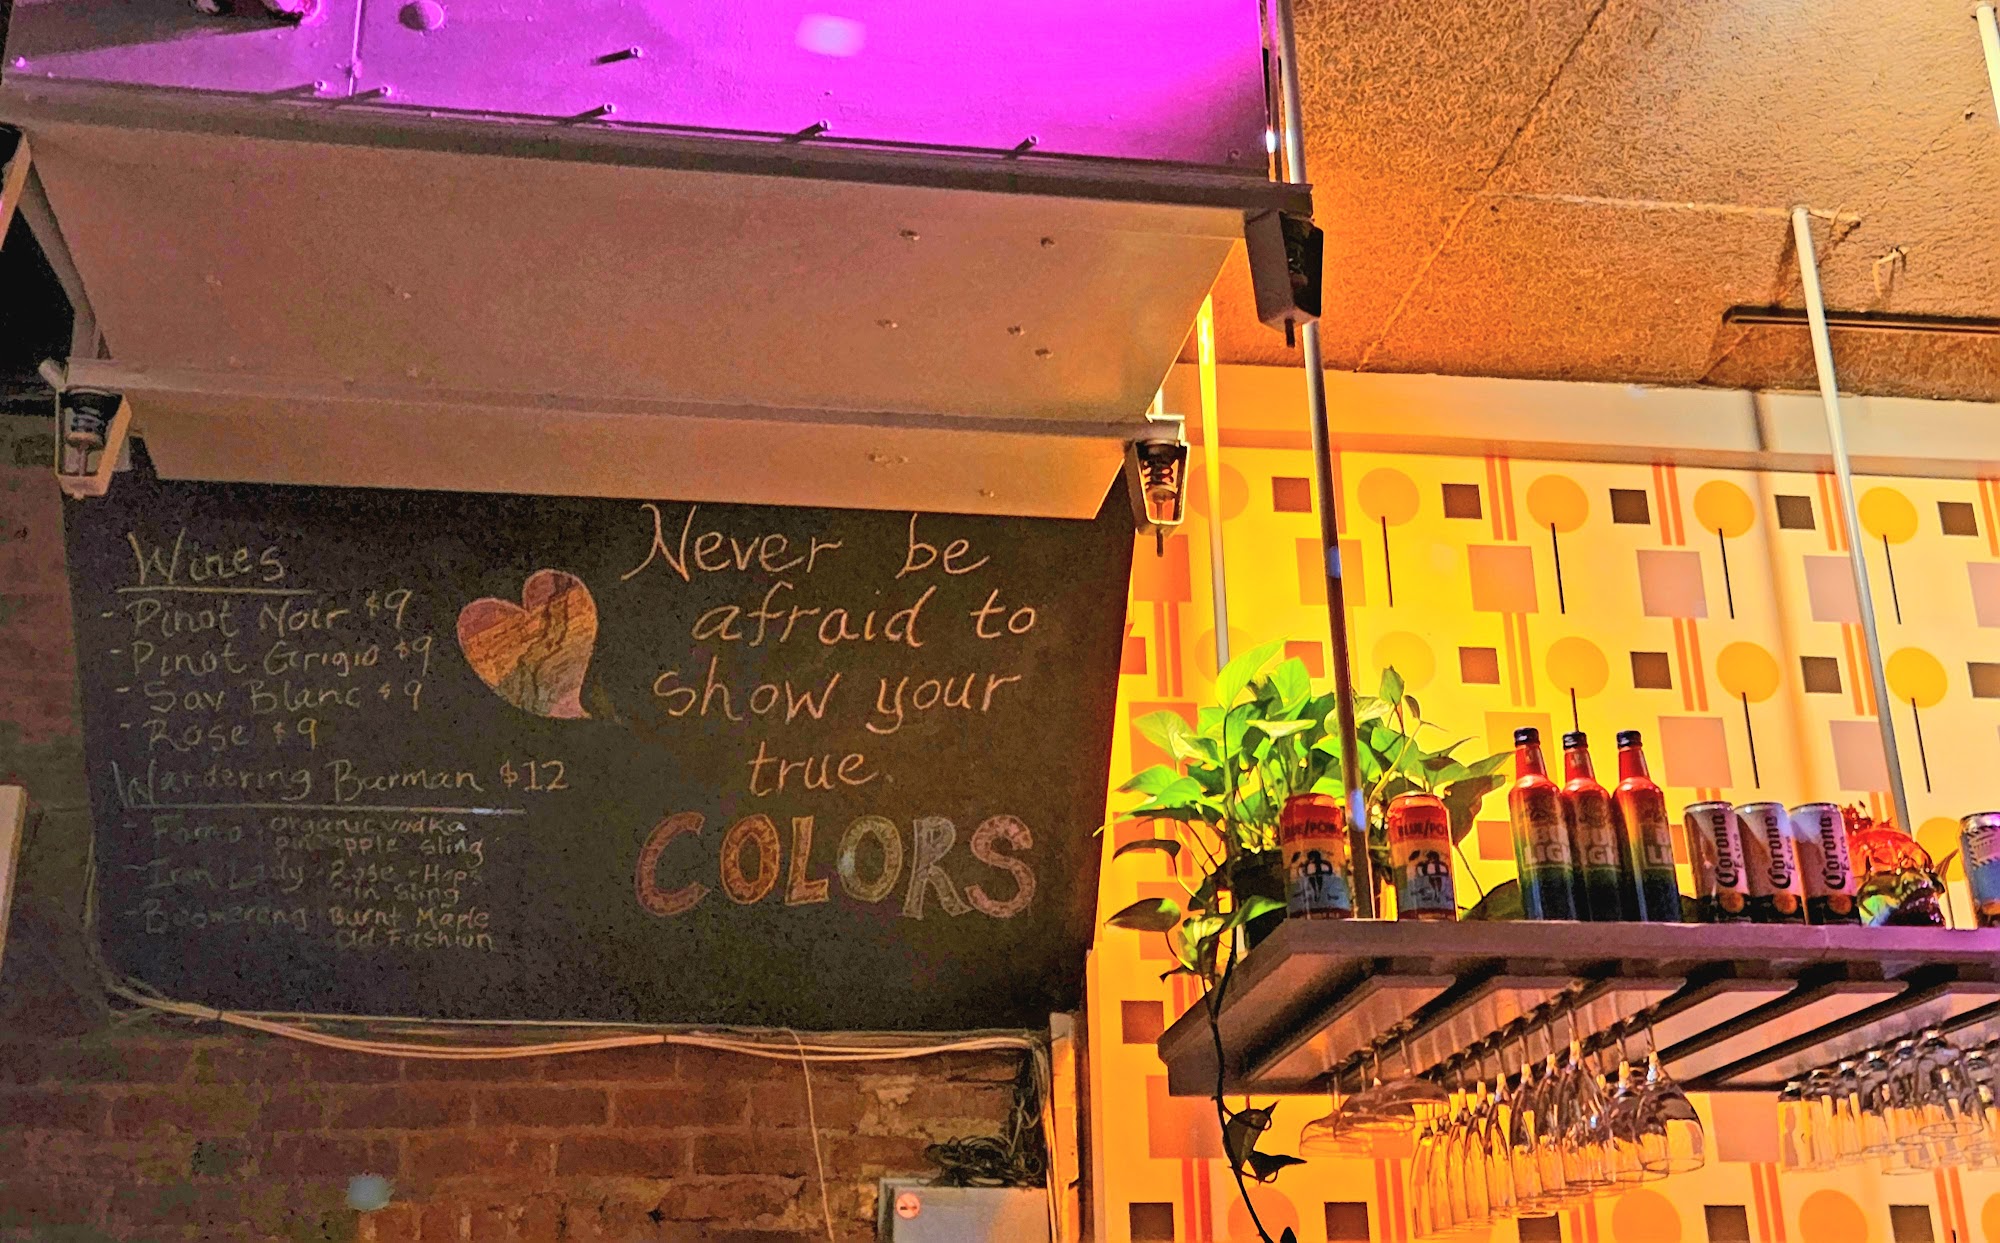 Wines
- Pinot Noir $9
- Pinot Grigio $9
- Sav Blanc $9
- Rose $9
Wandering Barman $12
- Fomo: organic vodka
pineapple sling
- Iron Lady: Rose + Hops
Gin Sling
- Boomerang: Burnt Maple
Old Fashion
Never be
afraid to
show your
true
COLORS
BLUE/POI
BLUE/PO
LIG
LI
Corona
Extra
Corona
Extra
Corona
Extra